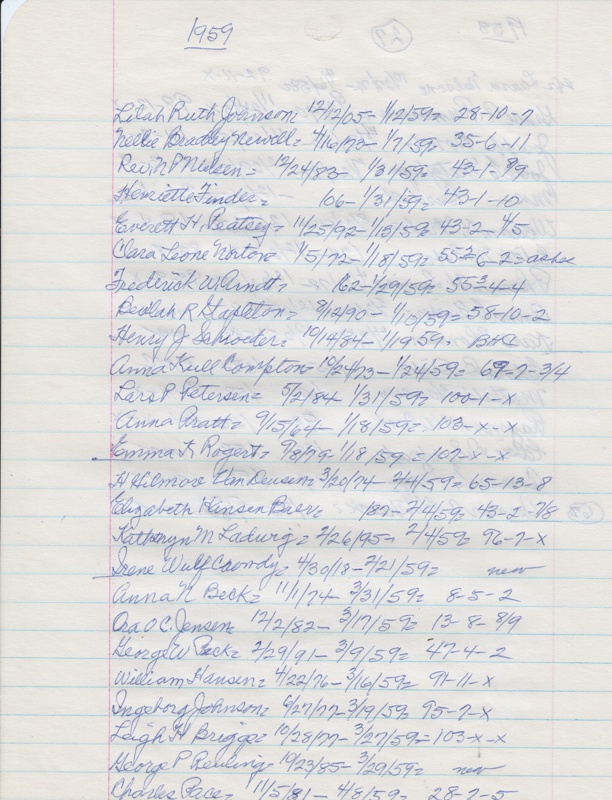 1959
Lilah Ruth Johnson= 12/12/05- 1/12/59= 28-10-7
Nellie Bradley Newell= 4/16/73- 1/7/59= 35-6-11
Rev. N P Nielsen= 12/24/83- 1/31/59= 43-1-8/9
Henriette Finder= 106- 1/31/59= 43-1-10
Everett H. Peatsey= 11/25/92- 1/13/59= 43-2-4/5
Clara Leone Norton= 1/5/72- 1/18/59= 55½-6-2=ashes
Frederick W Arnett= 162- 1/29/59= 55½-4-4
Beulah R Stapleton= 9/12/90- 1/10/59= 58-10-2
Henry J Schroeder= 10/14/84- 1/19 59=
Anna Kull Compton= 10/24/73- 1/24/59= 69-7-3/4
Lars P Petersen= 5/2/84- 1/31/59= 100-1-x
Anna Pratt= 9/15/64- 1/18/59= 103-x-x
Emma F. Rogert= 9/8/79- 1/18/59=102-x-x
H Hilmore Van Deusen= 3/20/74- 2/4/59= 65-13-8
Elizabeth Hinsen Baer= 187- 2/4/59= 43-2-7/8
Kathryn M Ladwig= 2/26/95- 2/4/59= 96-7-x
Irene Wulf Crowdy= 4/30/18- 2/21/59= new
Anna N Beck= 11/1/74- 3/31/59= 8-5-2
Ora O.C. Jensen= 12/2/82- 3/17/59= 13-8-8/9
George W Peck= 2/29/91- 3/9/59= 47-4-2
William Hansen= 4/22/76- 3/16/59= 91-11-x
Ingeborg Johnson= 6/27/77- 3/19/59= 95-7-x
Leigh H Briggs= 10/28/77- 3/27/59= 103-x-x
George P Reuling= 10/23/85- 3/29/59= new
Charles Pace= 11/5/81- 4/8/59= 28-2-5